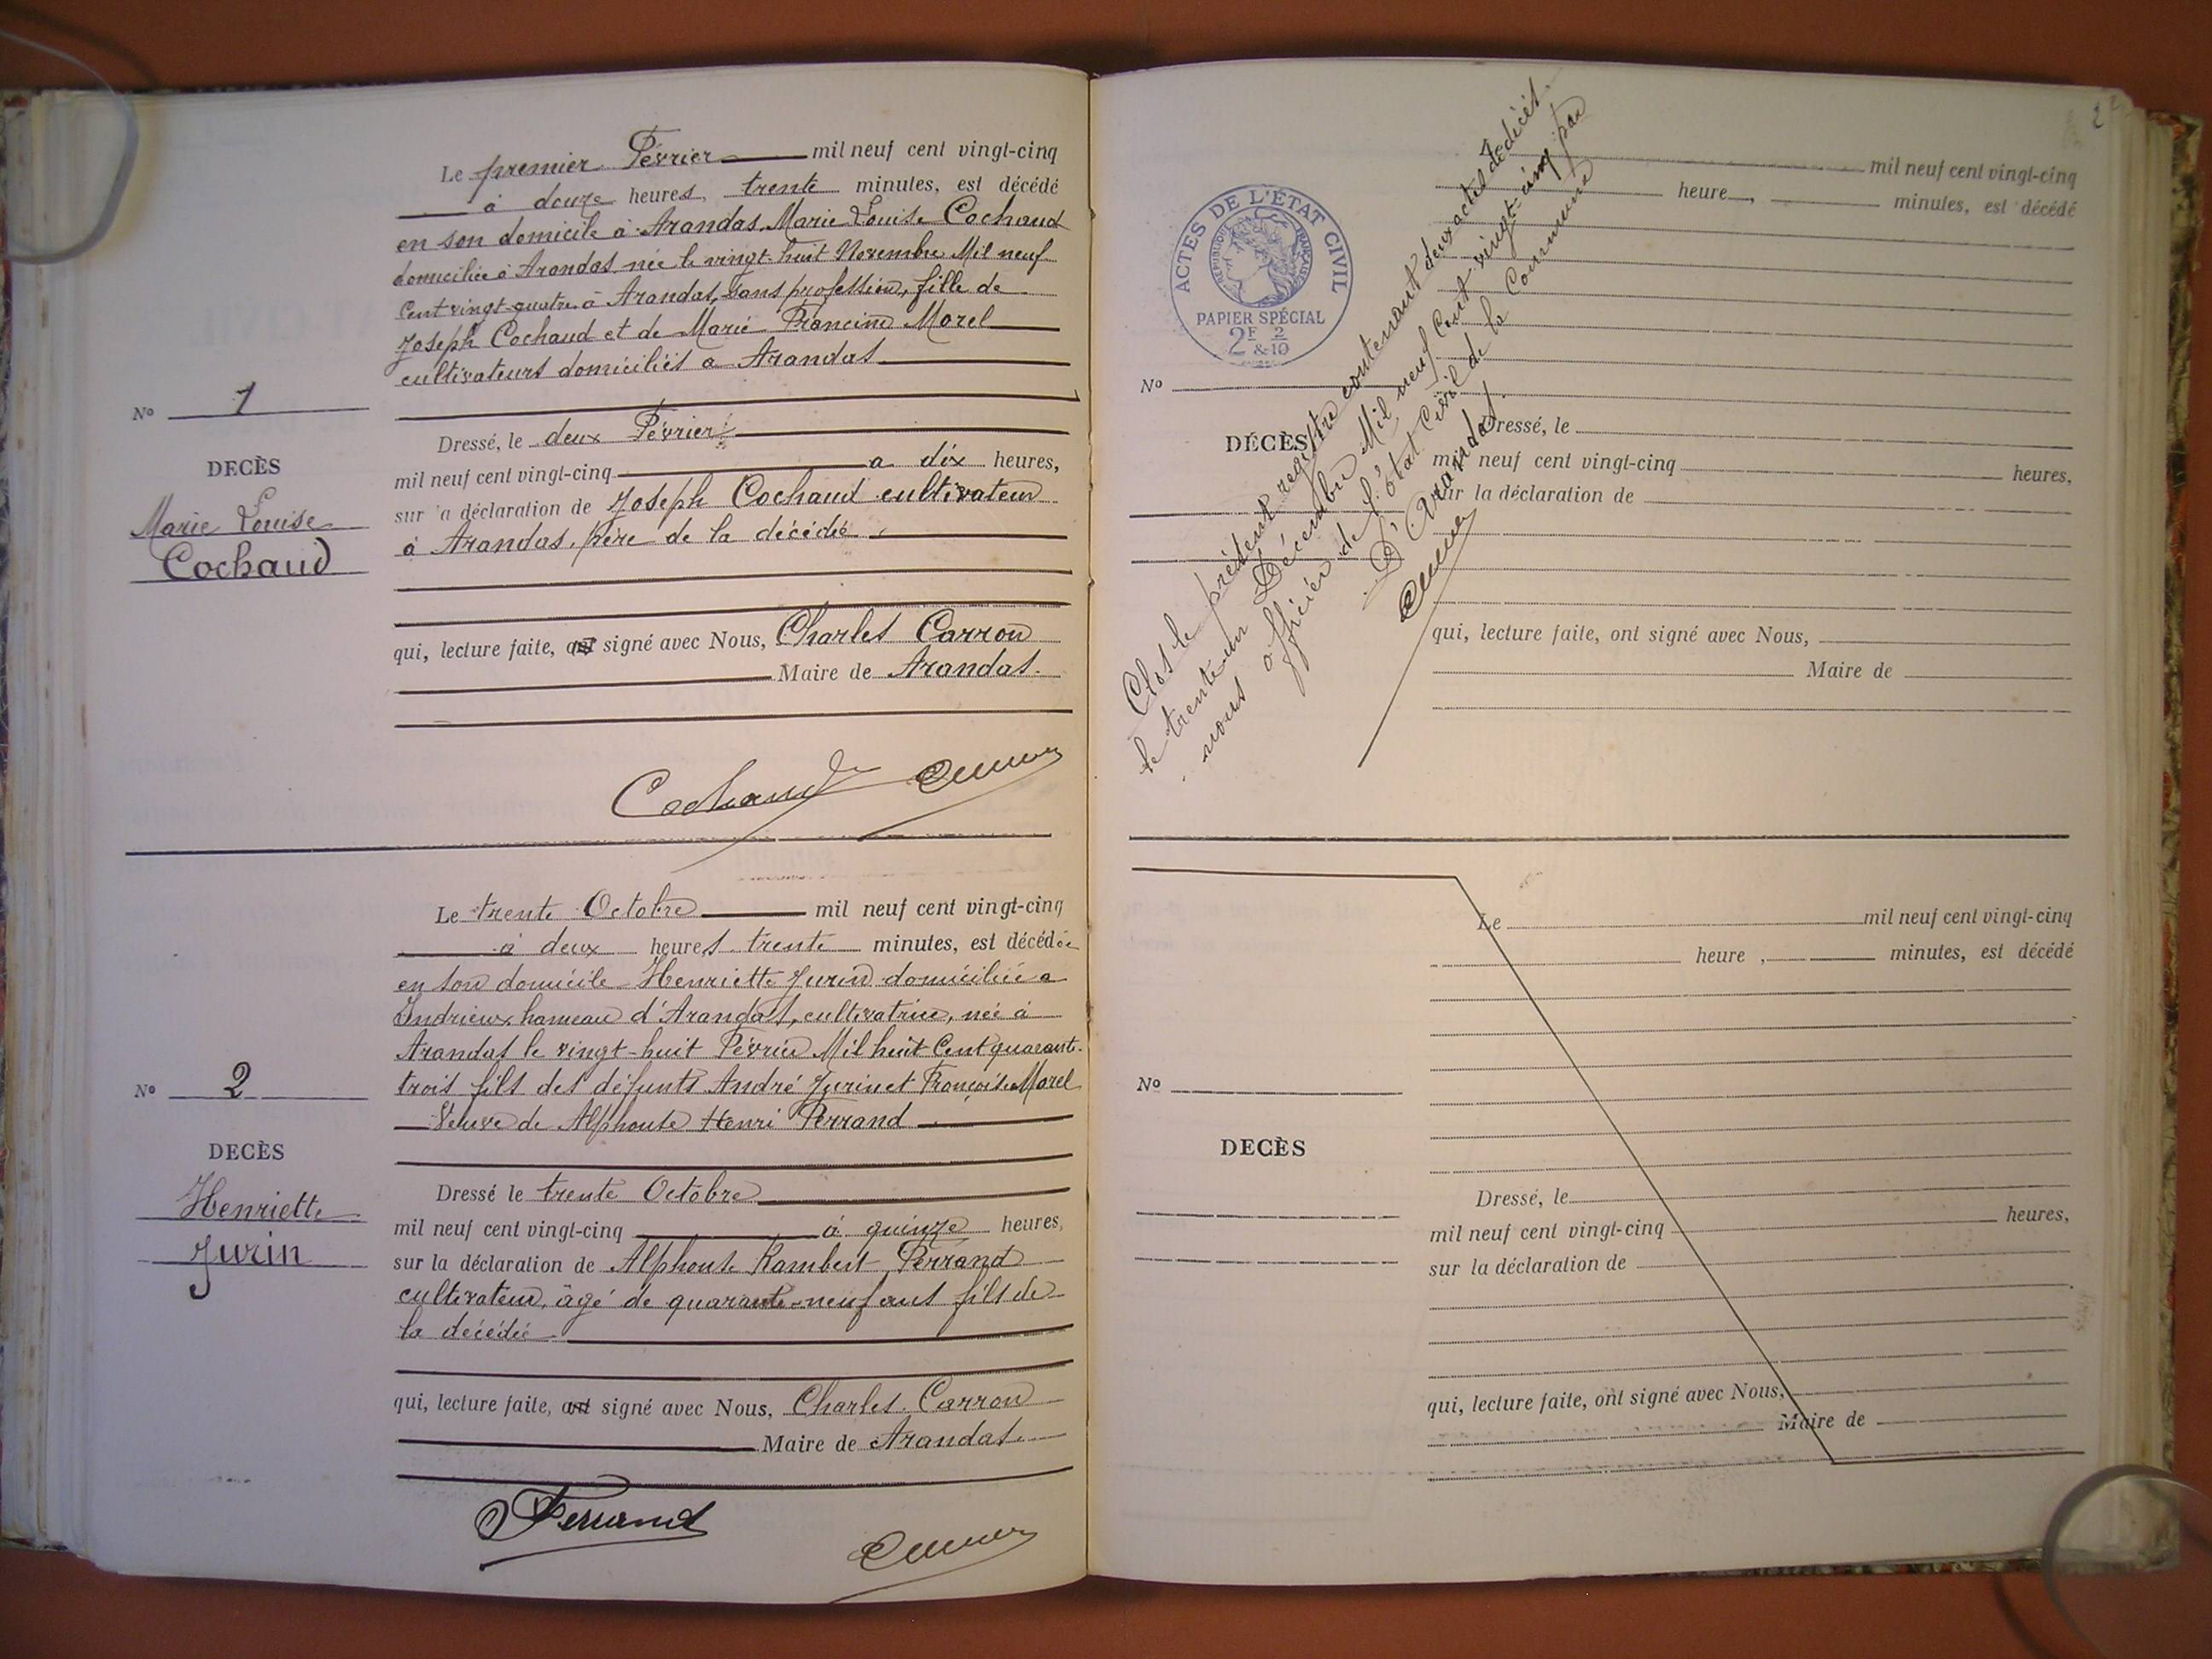 Le premier Février mil neuf cent vingt-cinq
à douze heures, trente minutes, est décédé
en son domicile à Arandas, Marie Louise Cochaud
domiciliée à Arandas née le vingt-huit Novembre Mil neuf
Cent vingt-quatre à Arandas, sans profession, fille de
Joseph Cochaud et de Marie Francine Morel
cultivateurs domiciliés à Arandas
No 1
DECÈS
Marie Louise
Cochaud
Dressé, le deux Février
mil neuf cent vingt-cinq a dix heures,
sur 'a déclaration de Joseph Cochaud cultivateur
à Arandas, père de la décédée
qui, lecture faite, a signé avec Nous, Charles Carron
Maire de Arandas.
Cochaud
Le trente Octobre mil neuf cent vingt-cinq
à deux heures trente minutes, est décédée
en son domicile Henriette Jurin domiciliée a
Indrieux hameau d'Arandas, cultivatrice, née à
Arandas le vingt-huit Février Mil huit Cent quarante-
trois fils des défunts André Jurin et Françoise Morel
Veuve de Alphonse Henri Ferrand
No 2
DECÈS
Henriette
Jurin
Dressé le trente Octobre
mil neuf cent vingt-cinq à quinze heures,
sur la déclaration de Alphonse Rambert Ferrand
cultivateur, âgé de quarante-neuf ans fils de
la décédée
qui, lecture faite, a signé avec Nous, Charles Carron
Maire de Arandas.
Ferrand
2
ACTES DE L'ÉTAT CIVIL
RÉPUBLIQUE FRANÇAISE
PAPIER SPÉCIAL
2F 2
&10
Clos le présent registre contenant deux actes de décès
le trente-un Décembre Mil neuf Cent vingt-cinq par
nous officier de l'état Civil de la Commune
d'Arandas.
Le mil neuf cent vingt-cinq
heure, minutes, est décédé
No
DÉCÈS
Dressé, le
mil neuf cent vingt-cinq heures,
sur la déclaration de
qui, lecture faite, ont signé avec Nous,
Maire de
Le mil neuf cent vingt-cinq
heure, minutes, est décédé
No
DECÈS
Dressé, le
mil neuf cent vingt-cinq heures,
sur la déclaration de
qui, lecture faite, ont signé avec Nous,
Maire de